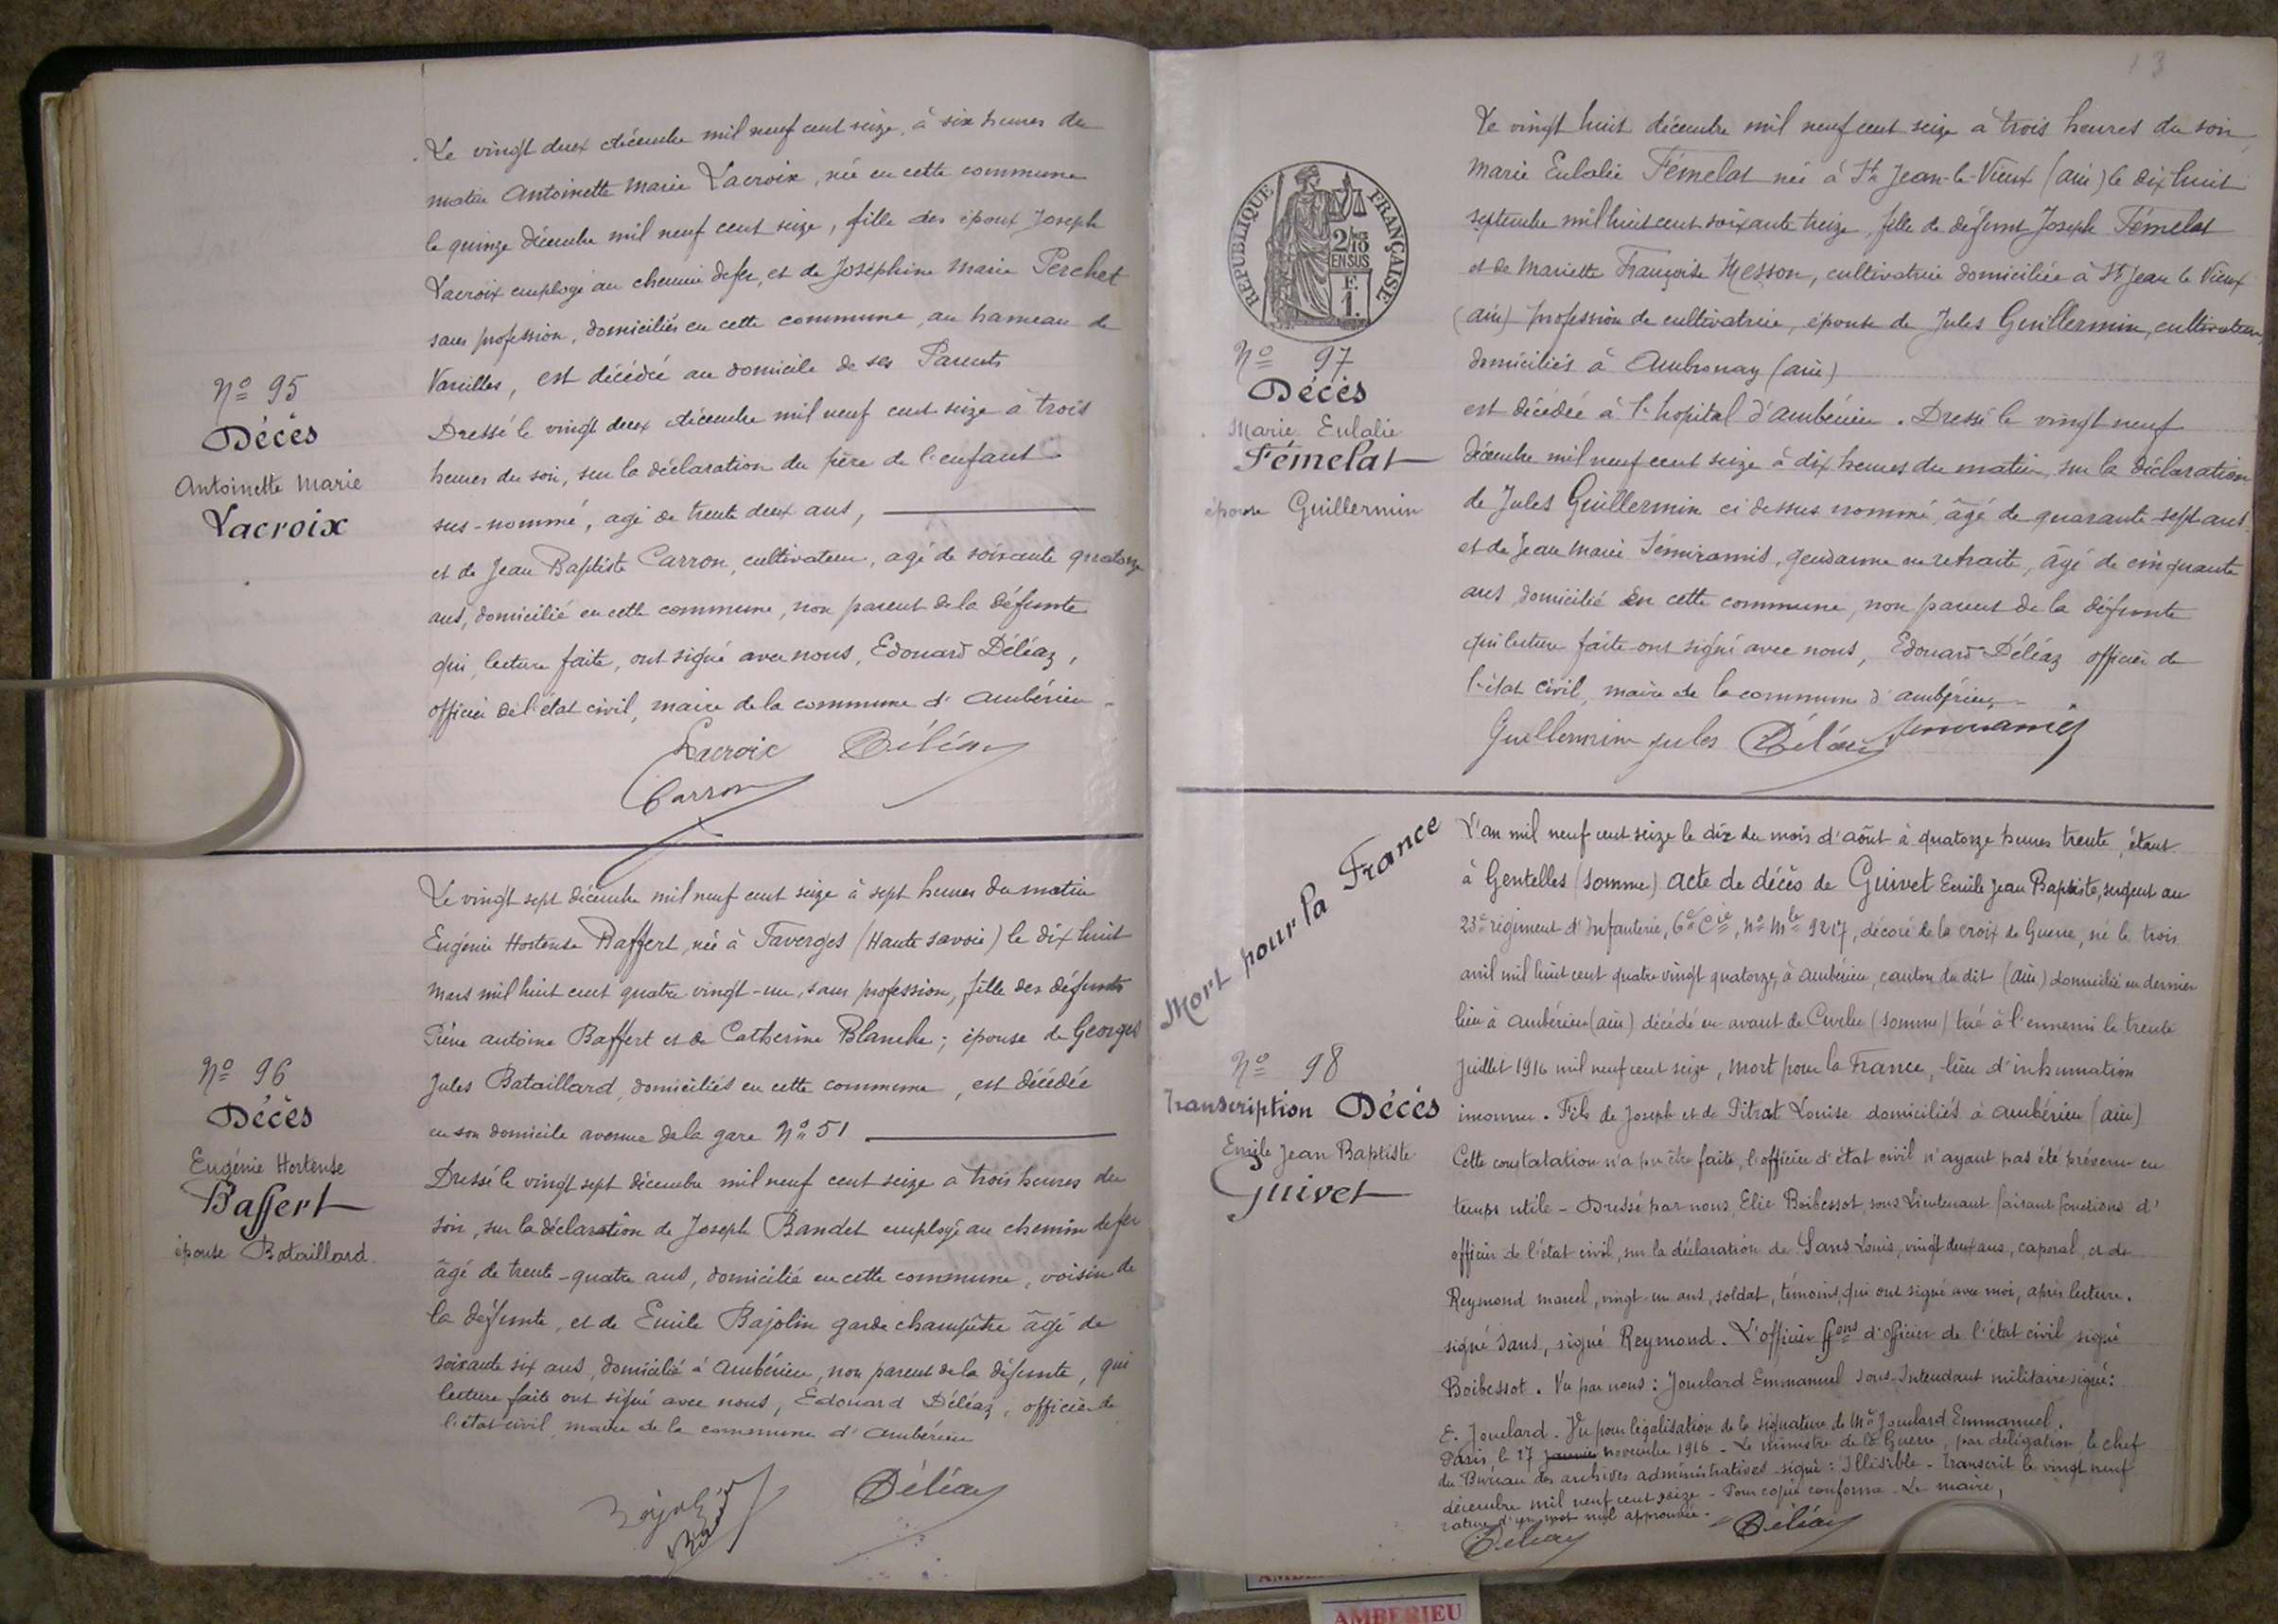 Le vingt deux décembre mil neuf cent seize, à six heures du
matin Antoinette Marie Lacroix, née en cette commune
le quinze décembre mil neuf cent seize, fille des époux Joseph
Lacroix employé au chemin de fer, et de Joséphine Marie Perchet
sans profession, domiciliés en cette commune, au hameau de
Vareilles, est décédée au domicile de ses Parents
Dressé le vingt deux décembre mil neuf cent seize à trois
heures du soir, sur la déclaration du père de l'enfant
sus-nommé, agé de trente deux ans,
et de Jean Baptiste Carron, cultivateur, agé de soixante quatorze
ans, domicilié en cette commune, non parent de la défunte
qui, lecture faite, ont signé avec nous, Edouard Déléaz,
officier de l'état civil, maire de la commune d'Ambérieu
Nº 95
Décès
Antoinette Marie
Lacroix
Lacroix Déléaz
Carron
Le vingt sept décembre mil neuf cent seize à sept heures du matin
Eugénie Hortense Baffert, née à Faverges (Haute Savoie) le dix huit
mars mil huit cent quatre vingt-un, sans profession, fille des défunts
Pierre Antoine Baffert et de Catherine Blanche; épouse de Georges
Jules Bataillard, domiciliés en cette commune, est décédée
en son domicile avenue de la gare Nº 51
Dressé le vingt sept décembre mil neuf cent seize a trois heures du
soir, sur la déclaration de Joseph Bandet employé au chemin de fer
âgé de trente-quatre ans, domicilié en cette commune, voisin de
la défunte, et de Emile Bajolin garde champêtre âgé de
soixante six ans, domicilié à Ambérieu, non parent de la défunte, qui
lecture faite ont signé avec nous, Edouard Déléaz, officier de
l'état civil, maire de la commune d'Ambérieu
Nº 96
Décès
Eugénie Hortense
Baffert
épouse Bataillard
Déléaz
13
Le vingt huit décembre mil neuf cent seize à trois heures du soir
Marie Eulalie Fémelat née à St Jean-le-Vieux (ain) le dix huit
septembre mil huit cent soixante treize, fille de défunt Joseph Fémelat
et de Mariette Françoise Messon, cultivatrice domiciliée à St Jean le Vieux
(ain) profession de cultivatrice, épouse de Jules Guillermin, cultivateur,
domiciliés à Ambronay (ain)
est décédée à l'hopital d'ambérieu. Dressé le vingt neuf
décembre mil neuf cent seize à dix heures du matin, sur la déclaration
de Jules Guillermin ci dessus nommé, âgé de quarante-sept ans
et de Jean Marie Sémiramis, gendarme en retraite, âgé de cinquante
ans, domicilié en cette commune, non parent de la défunte
qui lecture faite ont signé avec nous, Edouard Déléaz officier de
l'état civil, maire de la commune d'ambérieu
REPUBLIQUE FRANÇAISE
2/10
EN SUS
F.
1.
Nº 97
Décès
Marie Eulalie
Fémelat
épouse Guillermin
Guillermin Jules Déléaz Semiramis
Mort pour la France
L'an mil neuf cent seize le dix du mois d'août à quatorze heures trente, étant
à Gentelles (Somme) acte de décès de Guivet Emile Jean Baptiste, sergent au
23e régiment d'Infanterie, 6e Cie, Nº Mle 9217, décoré de la croix de Guerre, né le trois
avril mil huit cent quatre vingt quatorze à Ambérieu, canton du dit (ain) domicilié en dernier
lieu à Ambérieu (ain) décédé en avant de Curlu (Somme) tué à l'ennemi le trente
Juillet 1916 mil neuf cent seize, mort pour la France, lieu d'inhumation
inconnu. Fils de Joseph et de Pitrat Louise domiciliés à Ambérieu (ain)
Cette constatation n'a pu être faite, l'officier d'état civil n'ayant pas été prévenu en
temps utile - Dressé par nous, Elie Boibessot, sous Lieutenant faisant fonctions d'
officier de l'état civil, sur la déclaration de Sans Louis, vingt deux ans, caporal, et de
Reymond Marcel, vingt-un ans, soldat, témoins, qui ont signé avec moi, après lecture.
signé Sans, signé Reymond. L'officier ffons d'officier de l'état civil signé
Boibessot. Vu par nous: Jouclard Emmanuel Sous-Intendant militaire signé:
E. Jouclard. Vu pour légalisation de la signature de Mr Jouclard Emmanuel.
Paris, le 17 janvier novembre 1916 - Le ministre de la Guerre, par délégation, le chef
du Bureau des archives administratives signé: Illisible - Transcrit le vingt neuf
décembre mil neuf cent seize - Pour copie conforme - Le maire,
rature d'un mot nul approuvée.
Nº 98
Transcription Décès
Emile Jean Baptiste
Guivet
Déléaz Déléaz
AMBERIEU